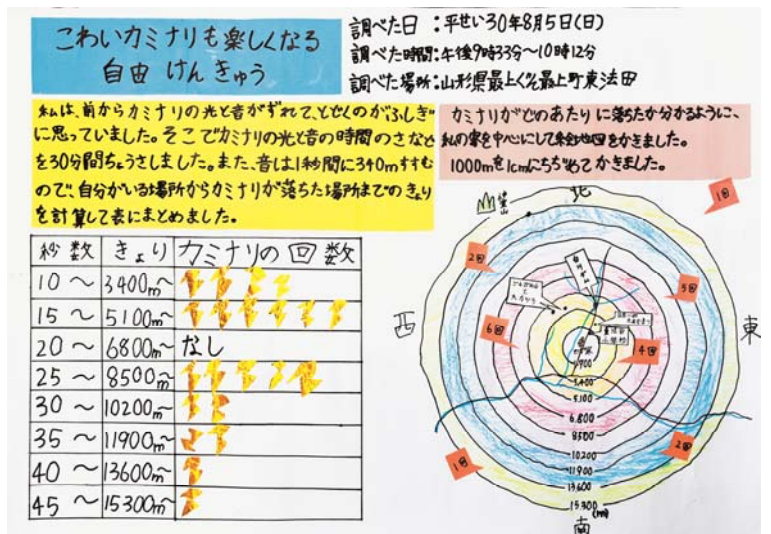 こわいカミナリも楽しくなる
自由 けんきゅう
調べた日：平せい30年8月5日(日)
調べた時間：午後9時33分〜10時12分
調べた場所：山形県最上ぐん最上町東法田
私は、前からカミナリの光と音がずれて、とどくのがふしぎ
に思っていました。そこでカミナリの光と音の時間のさなど
を30分間ちょうさしました。また、音は1秒間に340mすすむ
ので、自分がいる場所からカミナリが落ちた場所までのきょり
を計算して表にまとめました。
カミナリがどのあたりに落ちたか分かるように、
私の家を中心にして絵地図をかきました。
1000mを1cmにちぢめてかきました。
秒数 きょり カミナリの回数
10〜 3400m〜
15〜 5100m〜
20〜 6800m〜 なし
25〜 8500m〜
30〜 10200m〜
35〜 11900m〜
40〜 13600m〜
45〜 15300m〜
北
1回
2回
5回
西
東
6回
4回
小学校
1.700
3.400
5.100
6.800
8500
10200
11900
13600
15300
(m)
1回
2回
南